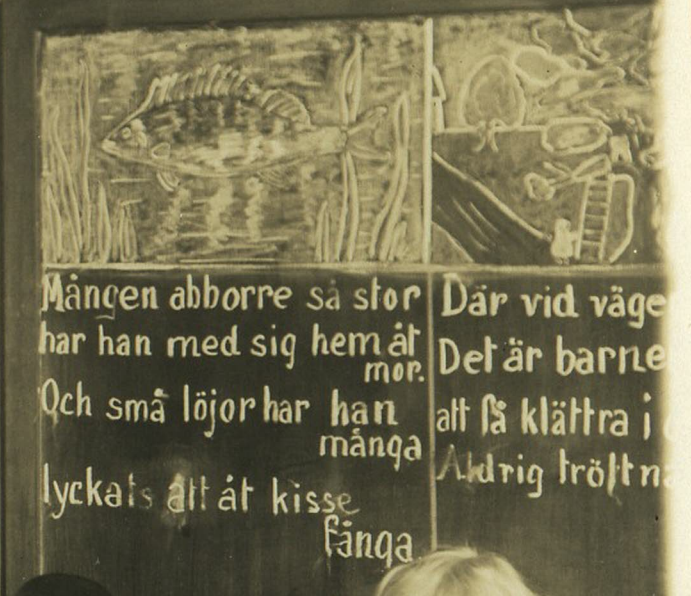 Mången abborre så stor
har han med sig hem åt
mor.
Och små löjor har han
många
lyckats att åt kisse
fånga
Där vid väge
Det är barne
att få klättra i
Aldrig tröttna